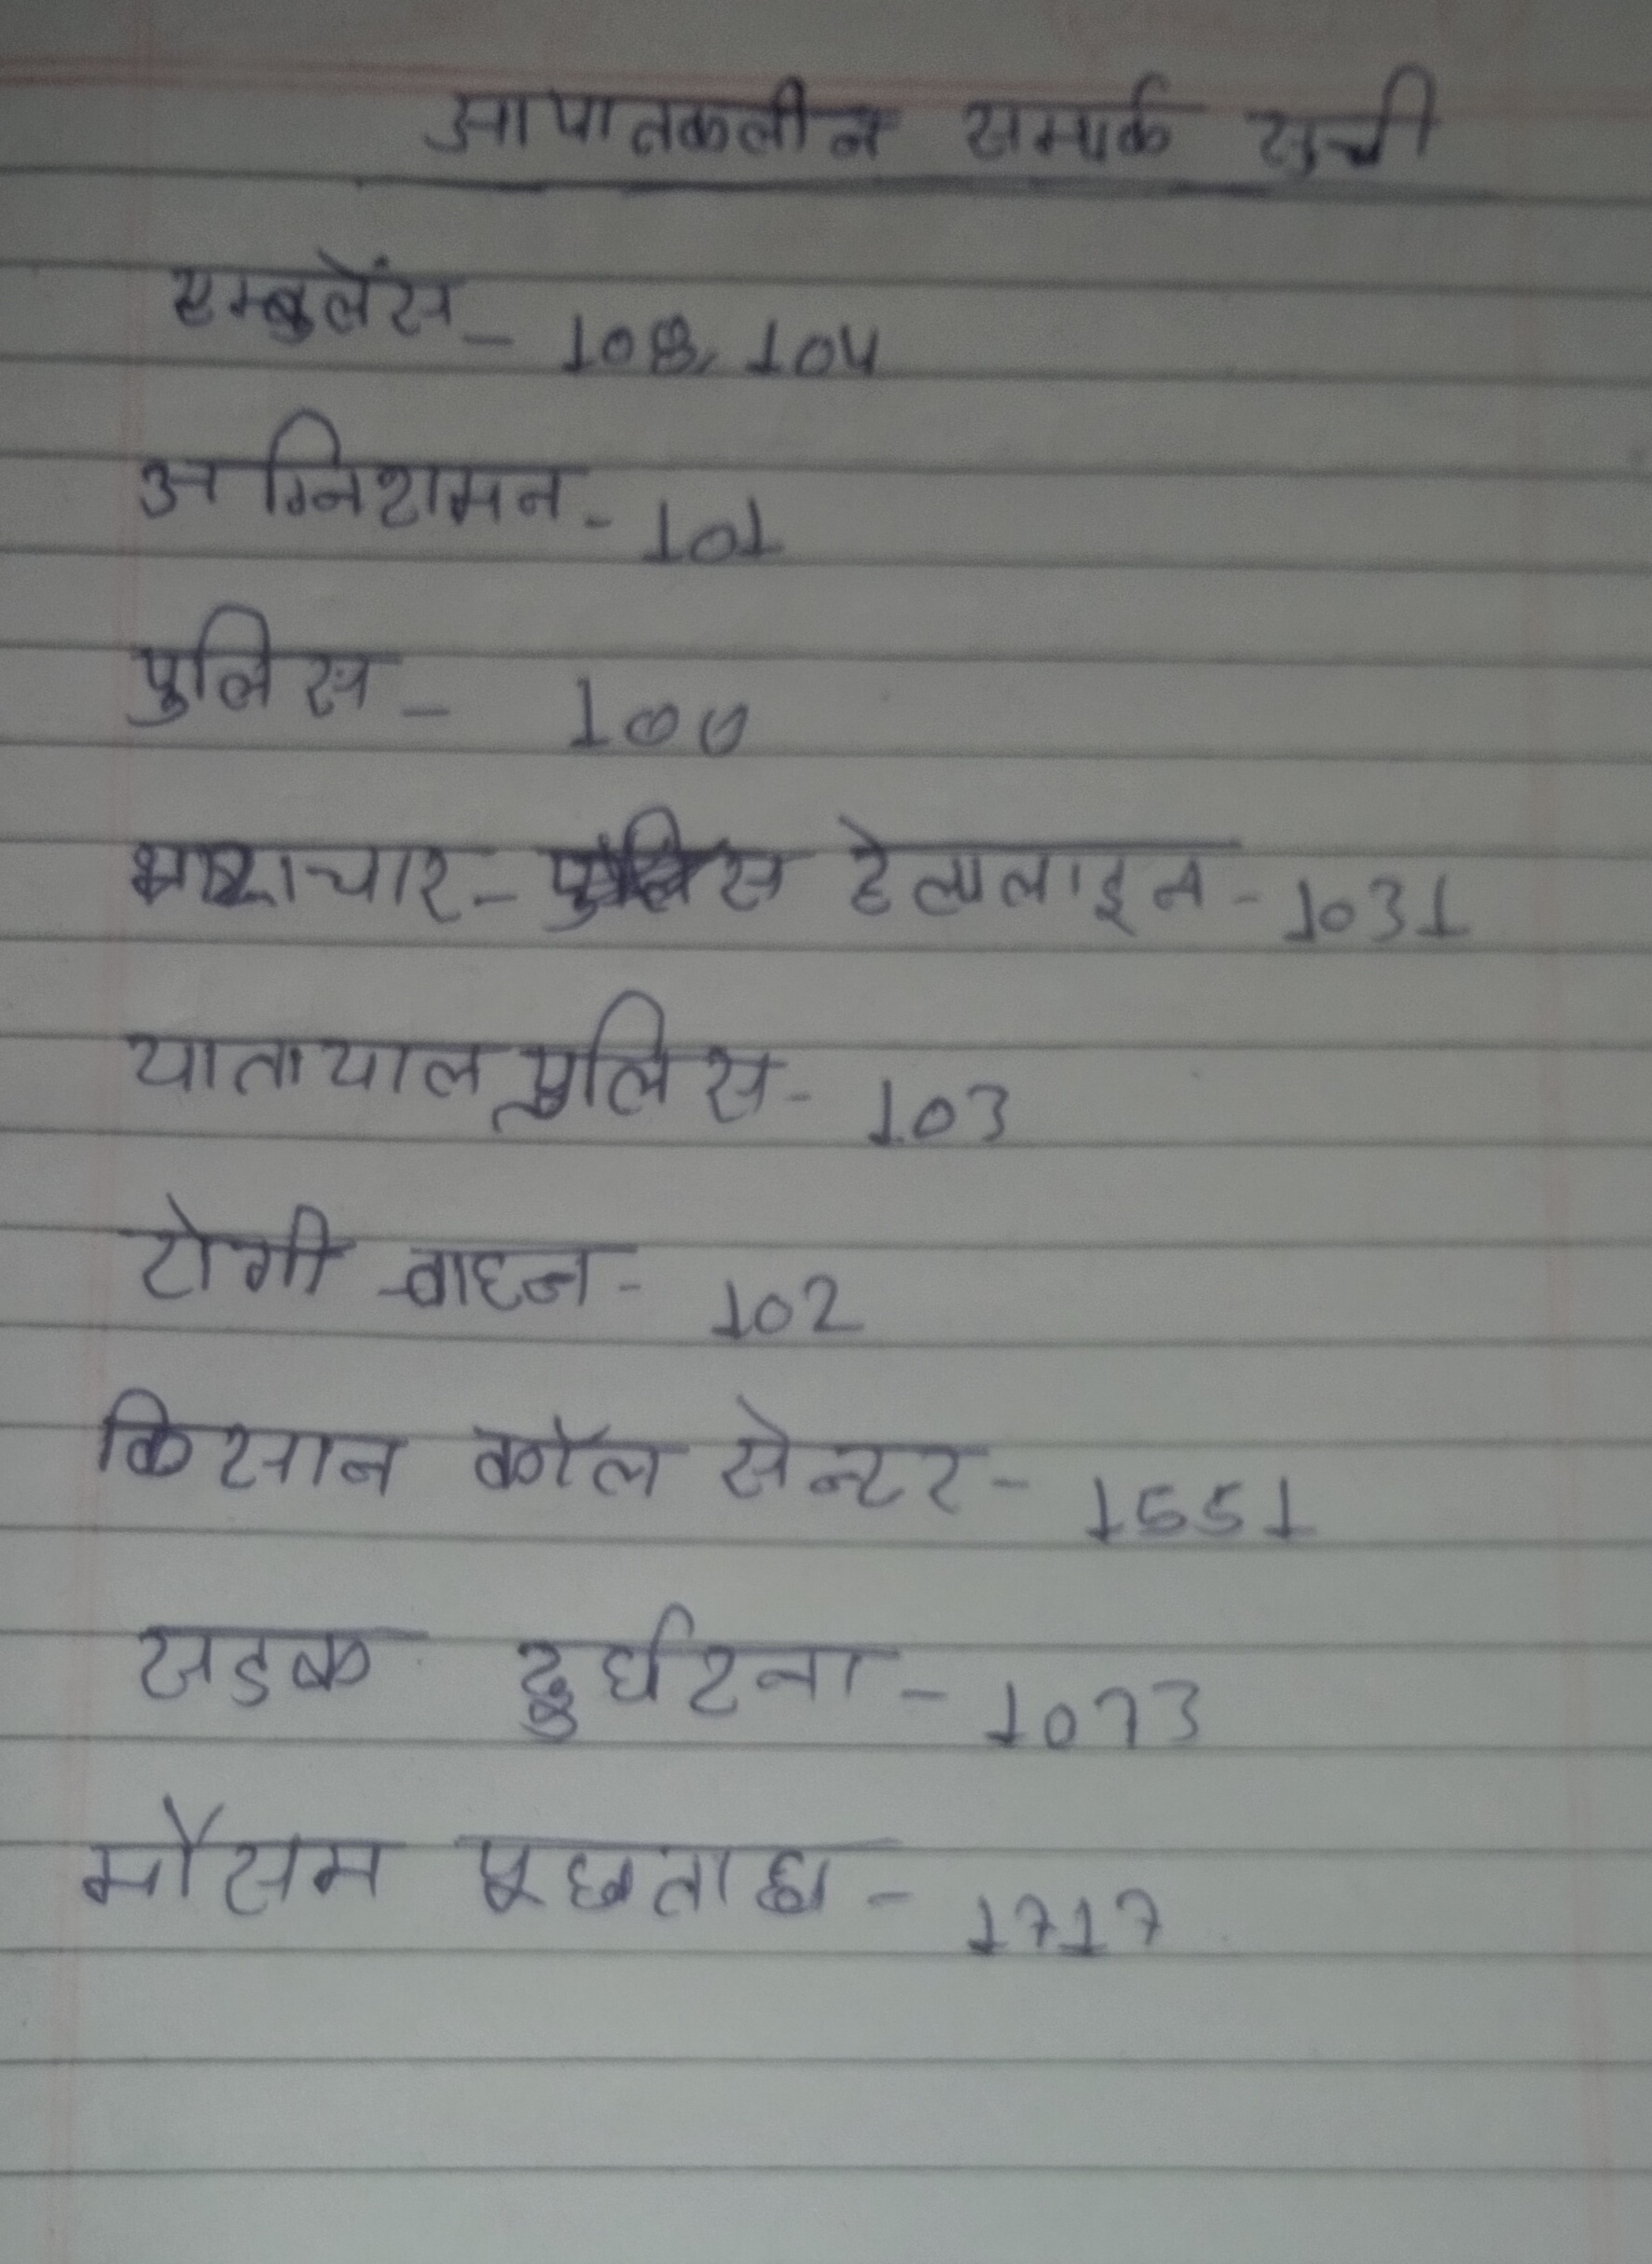 आपातकलीन सम्पर्क सुची
एम्बुलेंस - 108, 104
अग्निशमन - 101
पुलिस - 100
भ्रष्टाचार - पुलिस हेल्पलाइन - 1031
यातायात पुलिस - 103
रोगी वाहन - 102
किसान कॉल सेन्टर - 1551
सडक दुर्घटना - 1073
मौसम पूछताछ - 1717